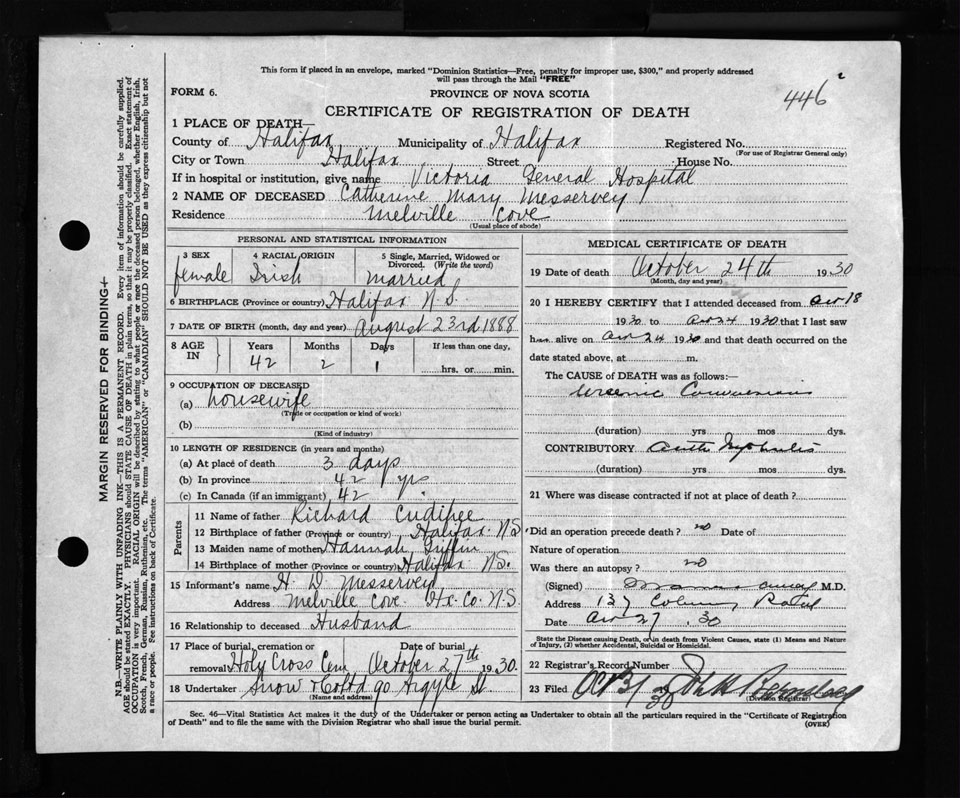 This form if placed in an envelope, marked "Dominion Statistics—Free, penalty for improper use, $300," and properly addressed
will pass through the Mail "FREE"
446
FORM 6.
PROVINCE OF NOVA SCOTIA
CERTIFICATE OF REGISTRATION OF DEATH
1 PLACE OF DEATH—
County of Halifax Municipality of Halifax Registered No.
(For use of Registrar General only)
City or Town Halifax Street House No.
If in hospital or institution, give name Victoria General Hospital
2 NAME OF DECEASED Catherine Mary Messervey
Residence Melville Cove
(Usual place of abode)
PERSONAL AND STATISTICAL INFORMATION
3 SEX 4 RACIAL ORIGIN 5 Single, Married, Widowed or Divorced. (Write the word)
female Irish married
6 BIRTHPLACE (Province or country) Halifax N.S.
7 DATE OF BIRTH (month, day and year) August 23rd 1888
8 AGE IN Years Months Days If less than one day,
42 2 1 hrs. or min.
9 OCCUPATION OF DECEASED
(a) housewife
(Trade or occupation or kind of work)
(b)
(Kind of industry)
10 LENGTH OF RESIDENCE (in years and months)
(a) At place of death 3 days
(b) In province 42 yrs
(c) In Canada (if an immigrant) 42
Parents
11 Name of father Richard Cudihee
12 Birthplace of father (Province or country) Halifax N.S.
13 Maiden name of mother Hannah Griffin
14 Birthplace of mother (Province or country) Halifax N.S.
15 Informant's name H D Messervey
Address Melville Cove Hx. Co. N.S.
16 Relationship to deceased Husband
17 Place of burial, cremation or removal Holy Cross Cem Date of burial October 27th 1930.
18 Undertaker Snow & Co Ltd 90 Argyle St
(Name and address)
MEDICAL CERTIFICATE OF DEATH
19 Date of death October 24th 1930
(Month, day and year)
20 I HEREBY CERTIFY that I attended deceased from Oct 18
1930 to Oct 24 1930 that I last saw
h alive on Oct 24 1930 and that death occurred on the
date stated above, at m.
The CAUSE of DEATH was as follows:—
Uraemic Convulsions
(duration) yrs mos dys.
CONTRIBUTORY Acute Nephritis
(duration) yrs mos dys.
21 Where was disease contracted if not at place of death?
Did an operation precede death? no Date of
Nature of operation
Was there an autopsy? no
(Signed) M.D.
Address 137
Date Oct 27 30
State the Disease causing Death, or in death from Violent Causes, state (1) Means and Nature
of Injury, (2) whether Accidental, Suicidal or Homicidal.
22 Registrar's Record Number
23 Filed Oct 31/30 John
(Division Registrar)
Sec. 46—Vital Statistics Act makes it the duty of the Undertaker or person acting as Undertaker to obtain all the particulars required in the "Certificate of Registration
of Death" and to file the same with the Division Registrar who shall issue the burial permit.
(OVER)
MARGIN RESERVED FOR BINDING
N.B.—WRITE PLAINLY WITH UNFADING INK—THIS IS A PERMANENT RECORD. Every item of information should be carefully supplied.
AGE should be stated EXACTLY. PHYSICIANS should STATE CAUSE OF DEATH in plain terms, so that it may be properly classified. Exact statement of
OCCUPATION is very important. RACIAL ORIGIN will be described by stating to what people or race the deceased person belonged, whether English, Irish,
Scotch, French, German, Russian, Ruthenian, etc. The terms "AMERICAN" or "CANADIAN" SHOULD NOT BE USED as they express citizenship but not
a race or people. See instructions on back of Certificate.